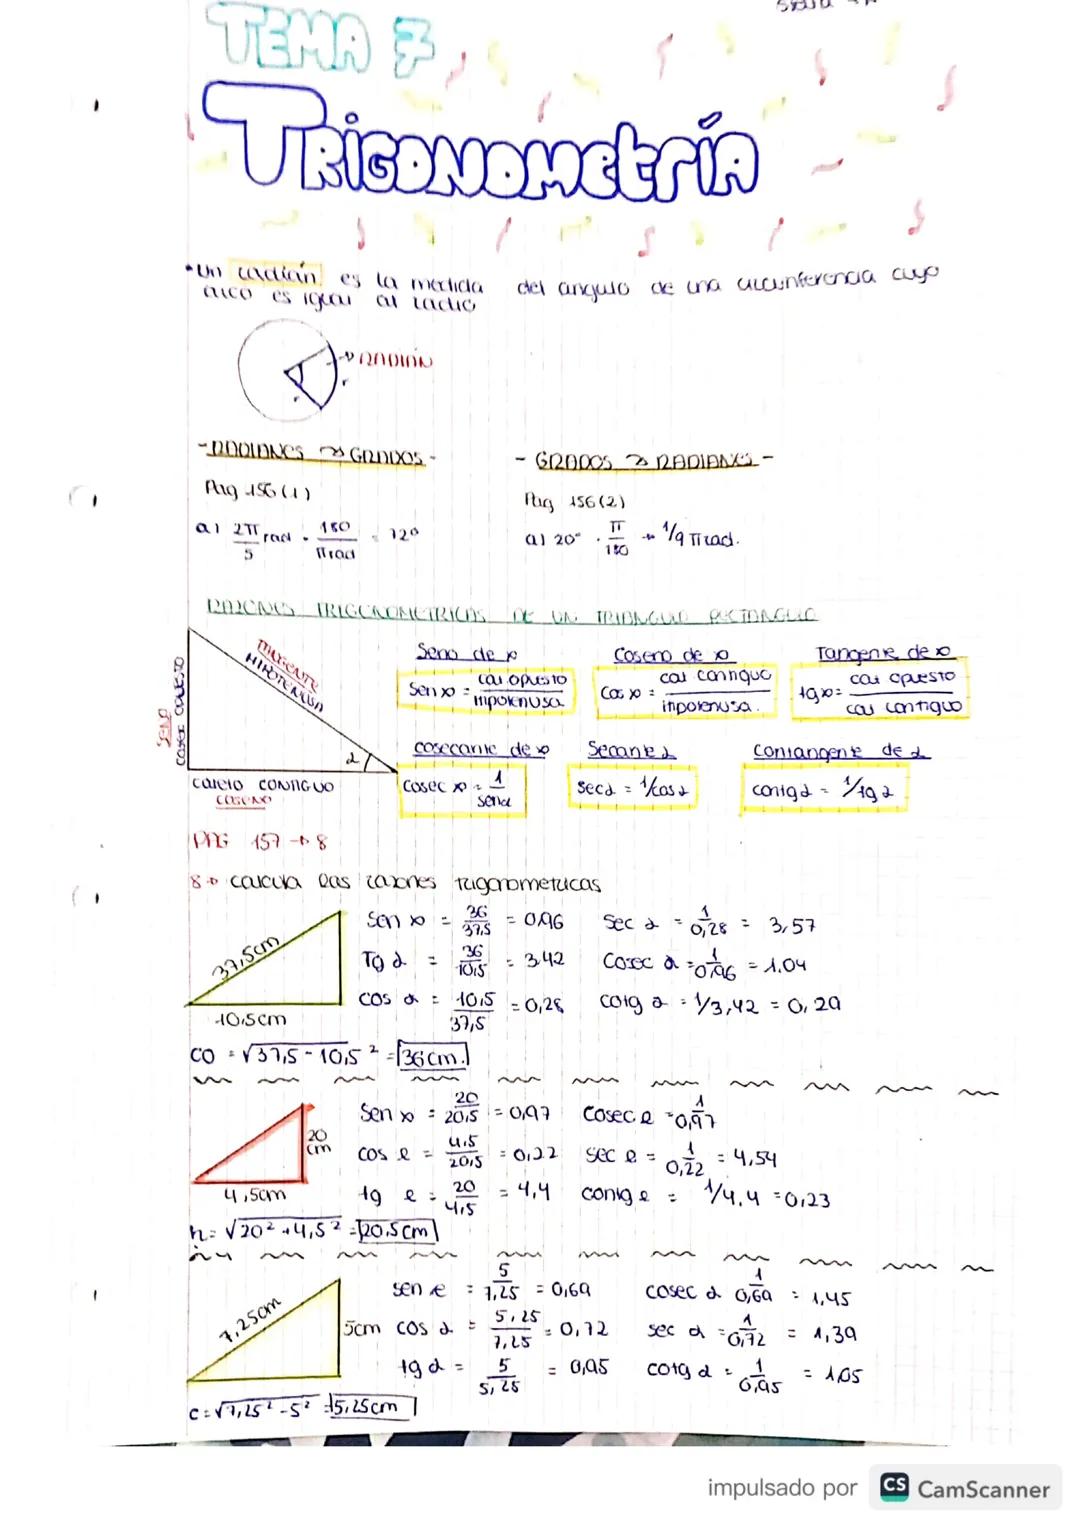 TEMA 7
TRIGONOMETRÍA
• Un radián es la medida del angulo de una circunferencia cuyo
arco es igual al radio
→ RADIÁN
r
r
- RADIANES → GRADOS -
- GRADOS → RADIANES -
Pag 156 (1)
Pag 156 (2)
a) 2π/5 rad · 180/π rad = 72º
a) 20º · π/180 → 1/9 π rad.
RAZONES TRIGONOMETRICAS DE UN TRIANGULO RECTANGULO
TANGENTE
HIPOTENUSA
SENO
CATETO OPUESTO
α
CATETO CONTIGUO
COSENO
Seno de α
Coseno de α
Tangente de α
Sen α = cat opuesto / hipotenusa
Cos α = cat contiguo / hipotenusa.
tg α = cat opuesto / cat contiguo
cosecante de α
Secante α
Contangente de α
Cosec α = 1/sen α
sec α = 1/cos α
contg α = 1/tg α
PAG 157 → 8
8→ calcula las razones trigonometricas
37,5cm
10,5cm
Sen α = 36/37,5 = 0,96
Sec α = 1/0,28 = 3,57
Tg α = 36/10,5 = 3,42
Cosec α = 1/0,96 = 1.04
cos α = 10,5/37,5 = 0,28
cotg α = 1/3,42 = 0,29
CO = √37,5 - 10,5² = 36cm.
20 cm
4,5cm
Sen α = 20/20,5 = 0,97
Cosec α = 1/0,97
cos α = 4,5/20,5 = 0,22
sec α = 1/0,22 = 4,54
tg α = 20/4,5 = 4,4
contg α = 1/4,4 = 0,23
h = √20² + 4,5² = 20,5cm
7,25cm
5cm
sen α = 5/7,25 = 0,69
cosec α 1/0,69 = 1,45
cos α = 5,25/7,25 = 0,72
sec α = 1/0,72 = 1,39
tg α = 5/5,25 = 0,95
cotg α = 1/0,95 = 1,05
c = √7,25² - 5² = 5,25cm
impulsado por CS CamScanner